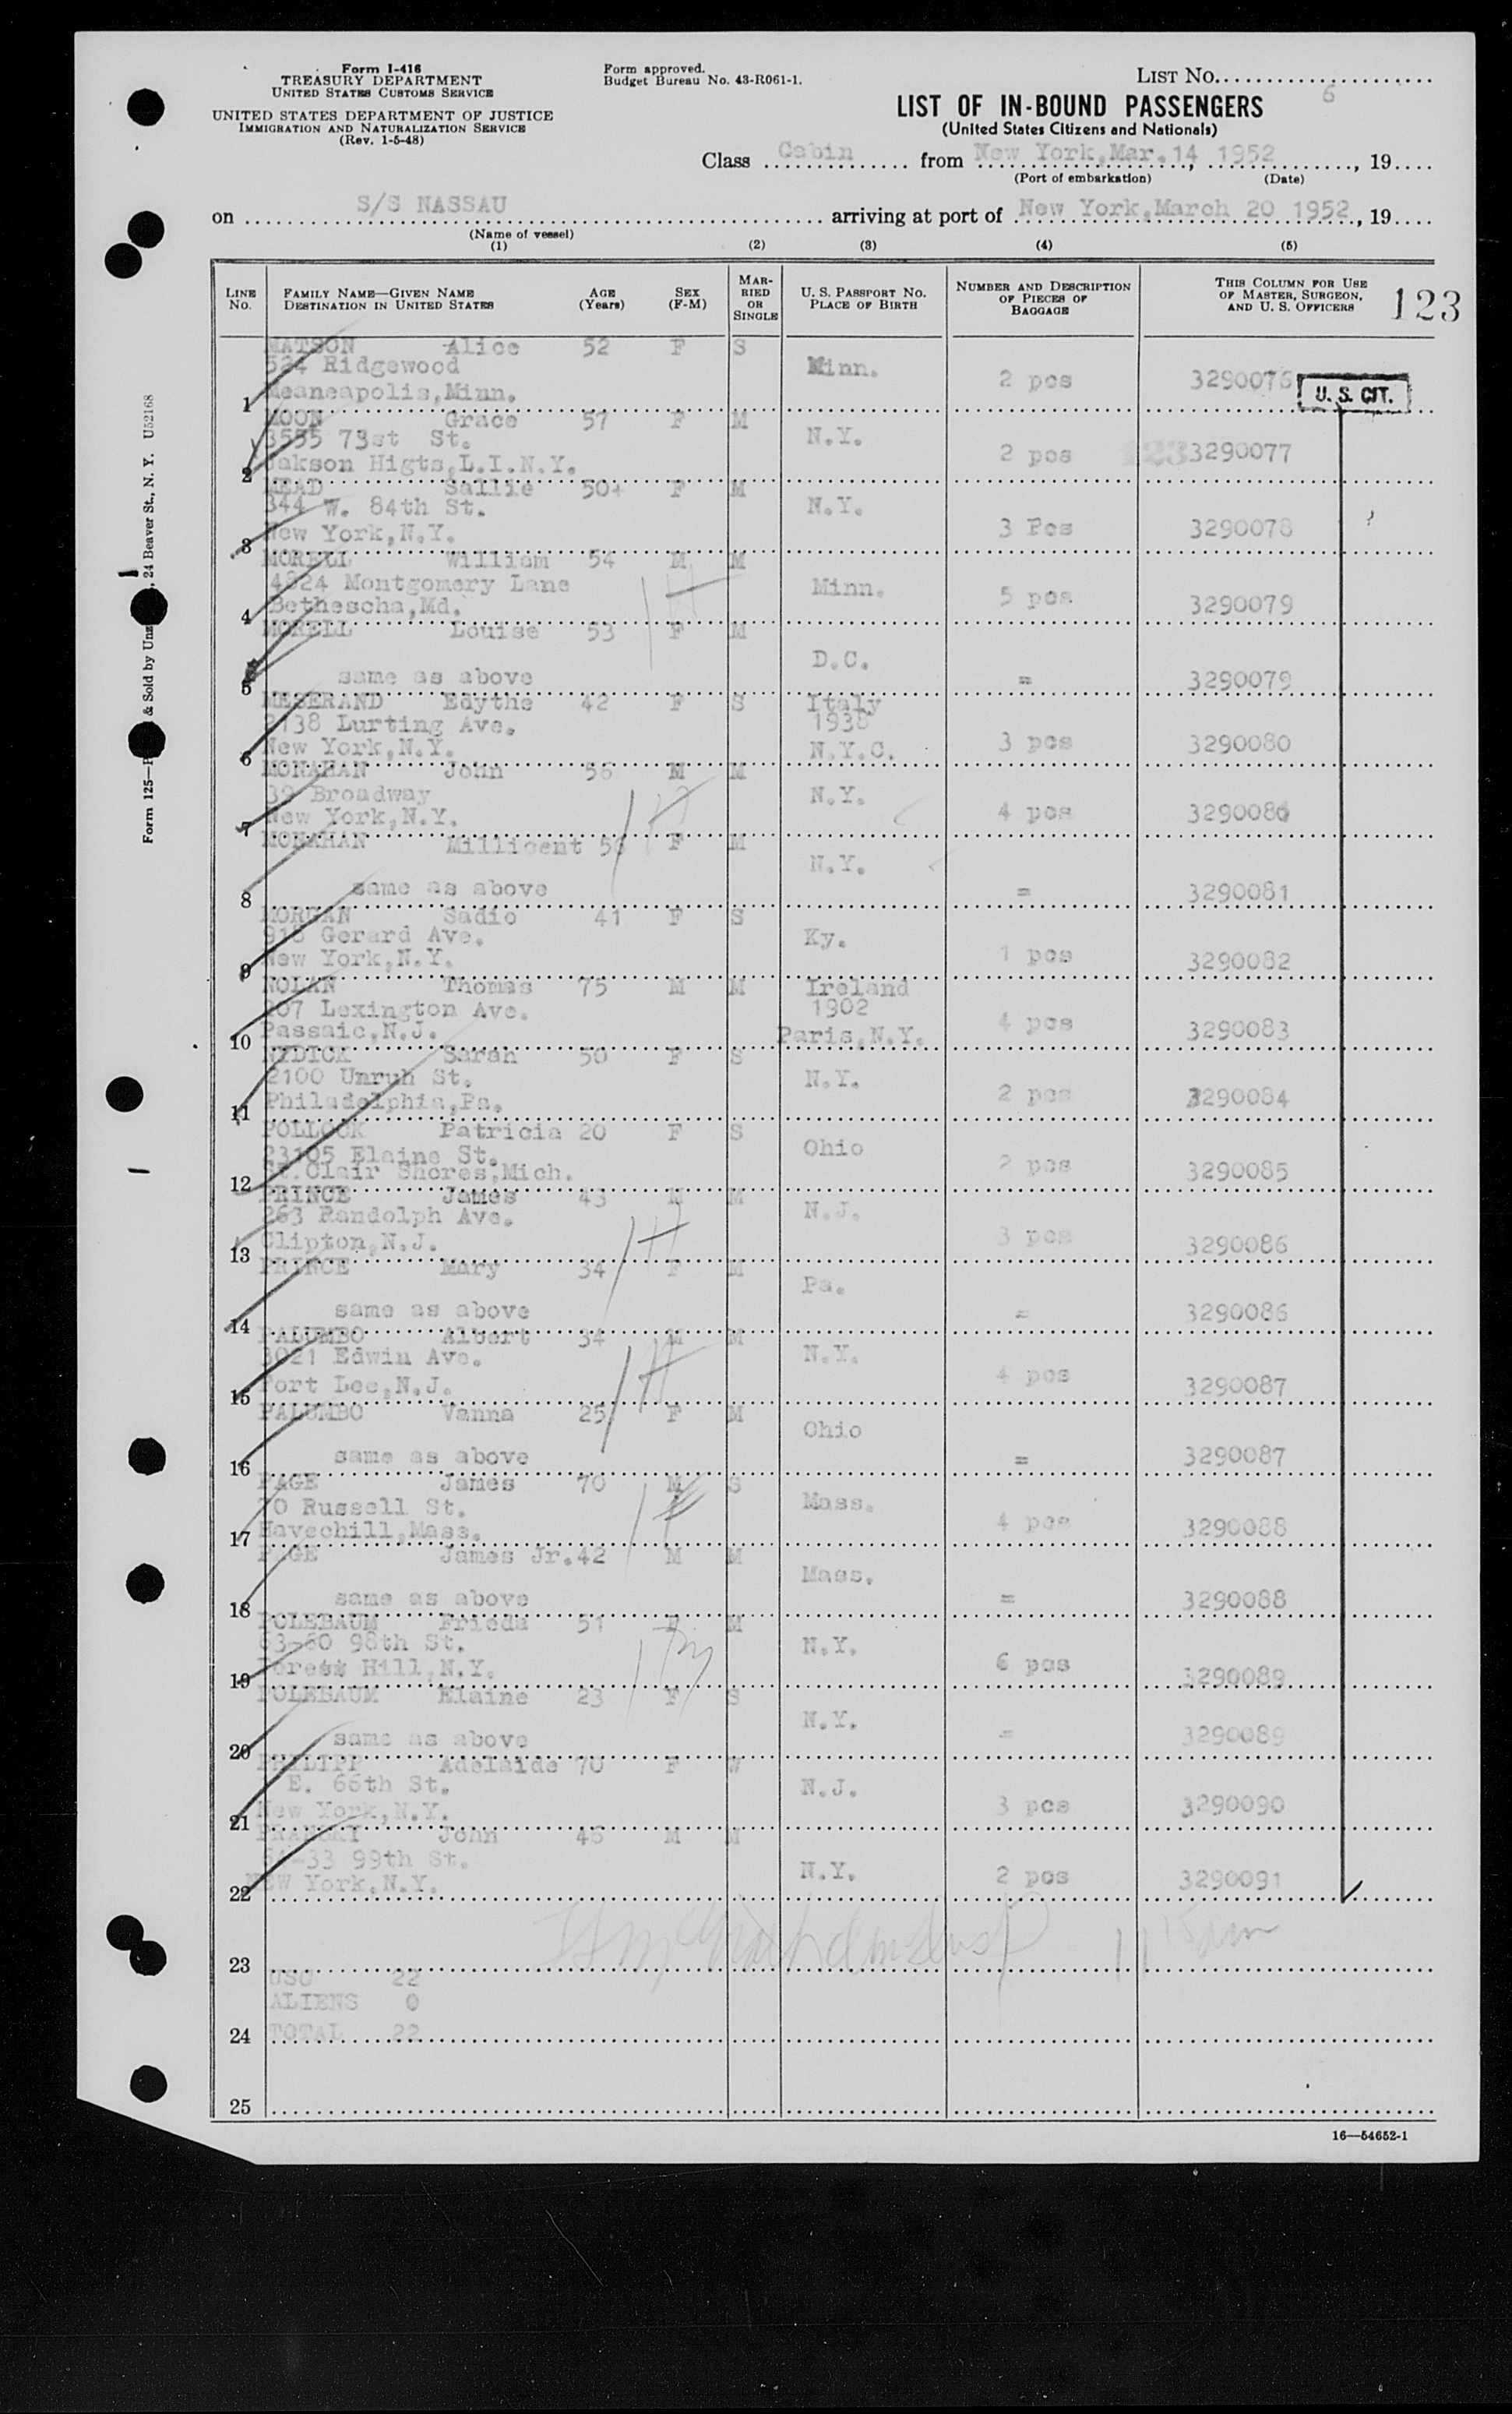 Form I-416
TREASURY DEPARTMENT
UNITED STATES CUSTOMS SERVICE
UNITED STATES DEPARTMENT OF JUSTICE
IMMIGRATION AND NATURALIZATION SERVICE
(Rev. 1-5-48)
Form approved.
Budget Bureau No. 43-R061-1.
LIST No.
6
LIST OF IN-BOUND PASSENGERS
(United States Citizens and Nationals)
Class Cabin from New York, Mar. 14 1952, 19
(Port of embarkation) (Date)
on S/S NASSAU arriving at port of New York, March 20 1952, 19
(Name of vessel)
(1) (2) (3) (4) (5)
LINE No. FAMILY NAME—GIVEN NAME DESTINATION IN UNITED STATES AGE (Years) SEX (F-M) MARRIED OR SINGLE U. S. PASSPORT No. PLACE OF BIRTH NUMBER AND DESCRIPTION OF PIECES OF BAGGAGE THIS COLUMN FOR USE OF MASTER, SURGEON, AND U. S. OFFICERS 123
MATSON Alice 52 F S
524 Ridgewood Minn.
1 Meaneapolis, Minn. 2 pcs 3290076 U. S. CIT.
MOON Grace 57 F M
3555 73st St. N.Y.
2 Jakson Higts, L.I.N.Y. 2 pcs 3290077
MEAD Sallie 50+ F M
344 W. 84th St. N.Y.
3 New York, N.Y. 3 Pcs 3290078
MORELL William 54 M M
4824 Montgomery Lane Minn.
4 Bethescha, Md. 5 pcs 3290079
MORELL Louise 53 F M
D.C.
5 same as above = 3290079
MESERAND Edythe 42 F S Italy
2138 Lurting Ave.
6 New York, N.Y. N.Y.C. 3 pcs 3290080
MONAHAN John 56 M M
39 Broadway N.Y.
7 New York, N.Y. 4 pcs
MONAHAN Millicent 56 F M
N.Y.
8 same as above = 3290081
MORGAN Sadie 41 F S
918 Gerard Ave. Ky.
9 New York, N.Y. 1 pcs 3290082
NOLAN Thomas 75 M M Ireland
207 Lexington Ave. 1902
10 Passaic, N.J. Paris, N.Y. 4 pcs 3290083
NYDICK Sarah 50 F S
2100 Unruh St. N.Y.
11 Philadelphia, Pa. 2 pcs 3290084
POLLOCK Patricia 20 F S
23105 Elaine St. Ohio
12 St. Clair Shores, Mich. 2 pcs 3290085
PRINCE James 43 M M
263 Randolph Ave. N.J.
13 Clipton, N.J. 3 pcs 3290086
PRINCE Mary 34 F M
Pa.
14 same as above = 3290086
PALUMBO Albert 34 M M
3021 Edwin Ave. N.Y.
15 Fort Lee, N.J. 4 pcs 3290087
PALUMBO Vanna 25 F M
Ohio
16 same as above = 3290087
PAGE James 70 M S
70 Russell St. Mass.
17 Havechill, Mass. 4 pcs 3290088
PAGE James Jr. 42 M M
Mass.
18 same as above = 3290088
POLEBAUM Frieda 51 F M
63-60 98th St. N.Y.
19 Forest Hill, N.Y. 6 pcs 3290089
POLEBAUM Elaine 23 F S
N.Y.
20 same as above = 3290089
PHILIPP Adelaide 70 F W
E. 66th St. N.J.
21 New York, N.Y. 3 pcs 3290090
John 46 M M
99th St.
22 New York, N.Y. N.Y. 2 pcs 3290091
23
USC 22
ALIENS 0
24 TOTAL 22
25
16—54652-1
Form 125— & Sold by , 24 Beaver St., N. Y. U52168